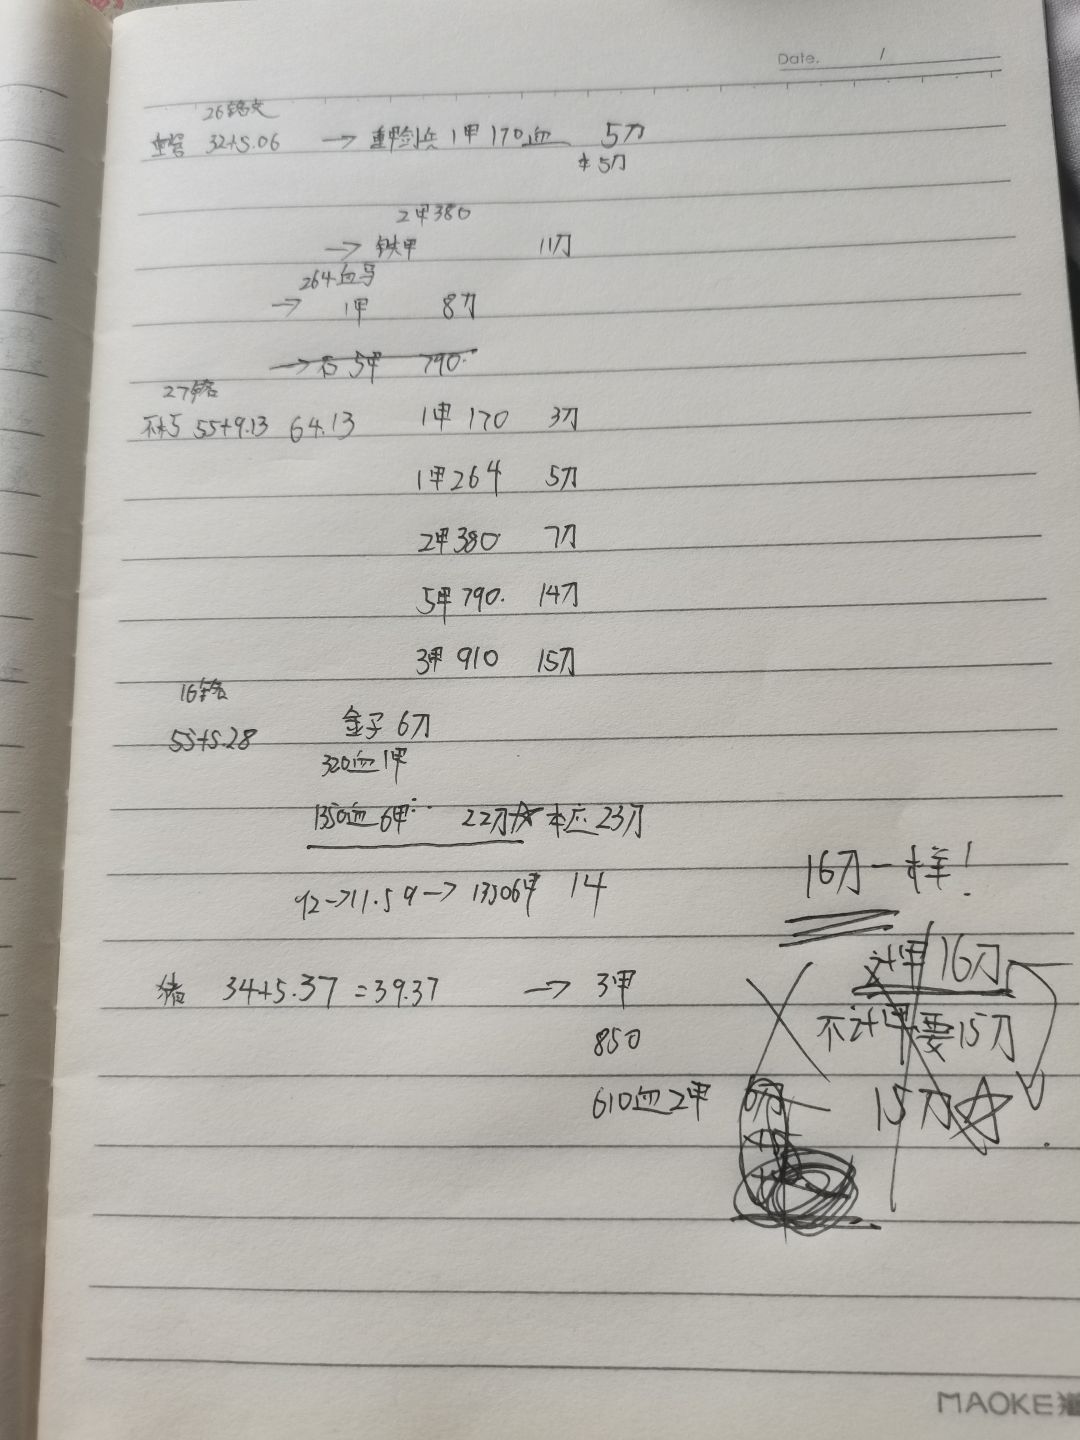 Date. /
26铭文
32+5.06 → 重甲剑兵 1甲 170血 5刀
本5刀
2甲380
→ 铁甲 11刀
264血弓
→ 1甲 8刀
→ 石 5甲 790.
27铭
55+9.13 64.13 1甲 170 3刀
1甲264 5刀
2甲380 7刀
5甲790. 14刀
3甲 910 15刀
16铭
55+5.28 金子 6刀
320血1甲
1350血6甲 22刀☆ 本应23刀
16刀一样!
92→11.59→ 13506甲 14
计甲 16刀
猪 34+5.37 =39.37 → 3甲
不计甲要15刀
850
610血2甲 6刀 15刀☆
MAOKE